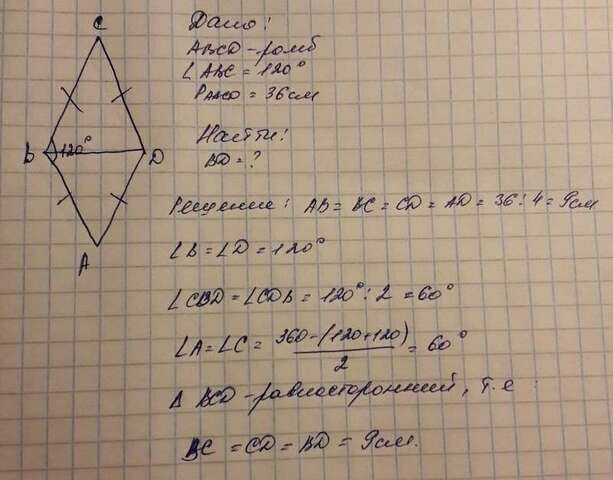 C
B 120° D
A
Дано:
ABCD - ромб
∠ABC = 120°
PABCD = 36 см
Найти:
BD = ?
Решение: AB = BC = CD = AD = 36 : 4 = 9 см
∠B = ∠D = 120°
∠CBD = ∠CDB = 120° : 2 = 60°
∠A = ∠C = 360 - (120 + 120) / 2 = 60°
Δ BCD - равносторонний, т.е.
BC = CD = BD = 9 см.